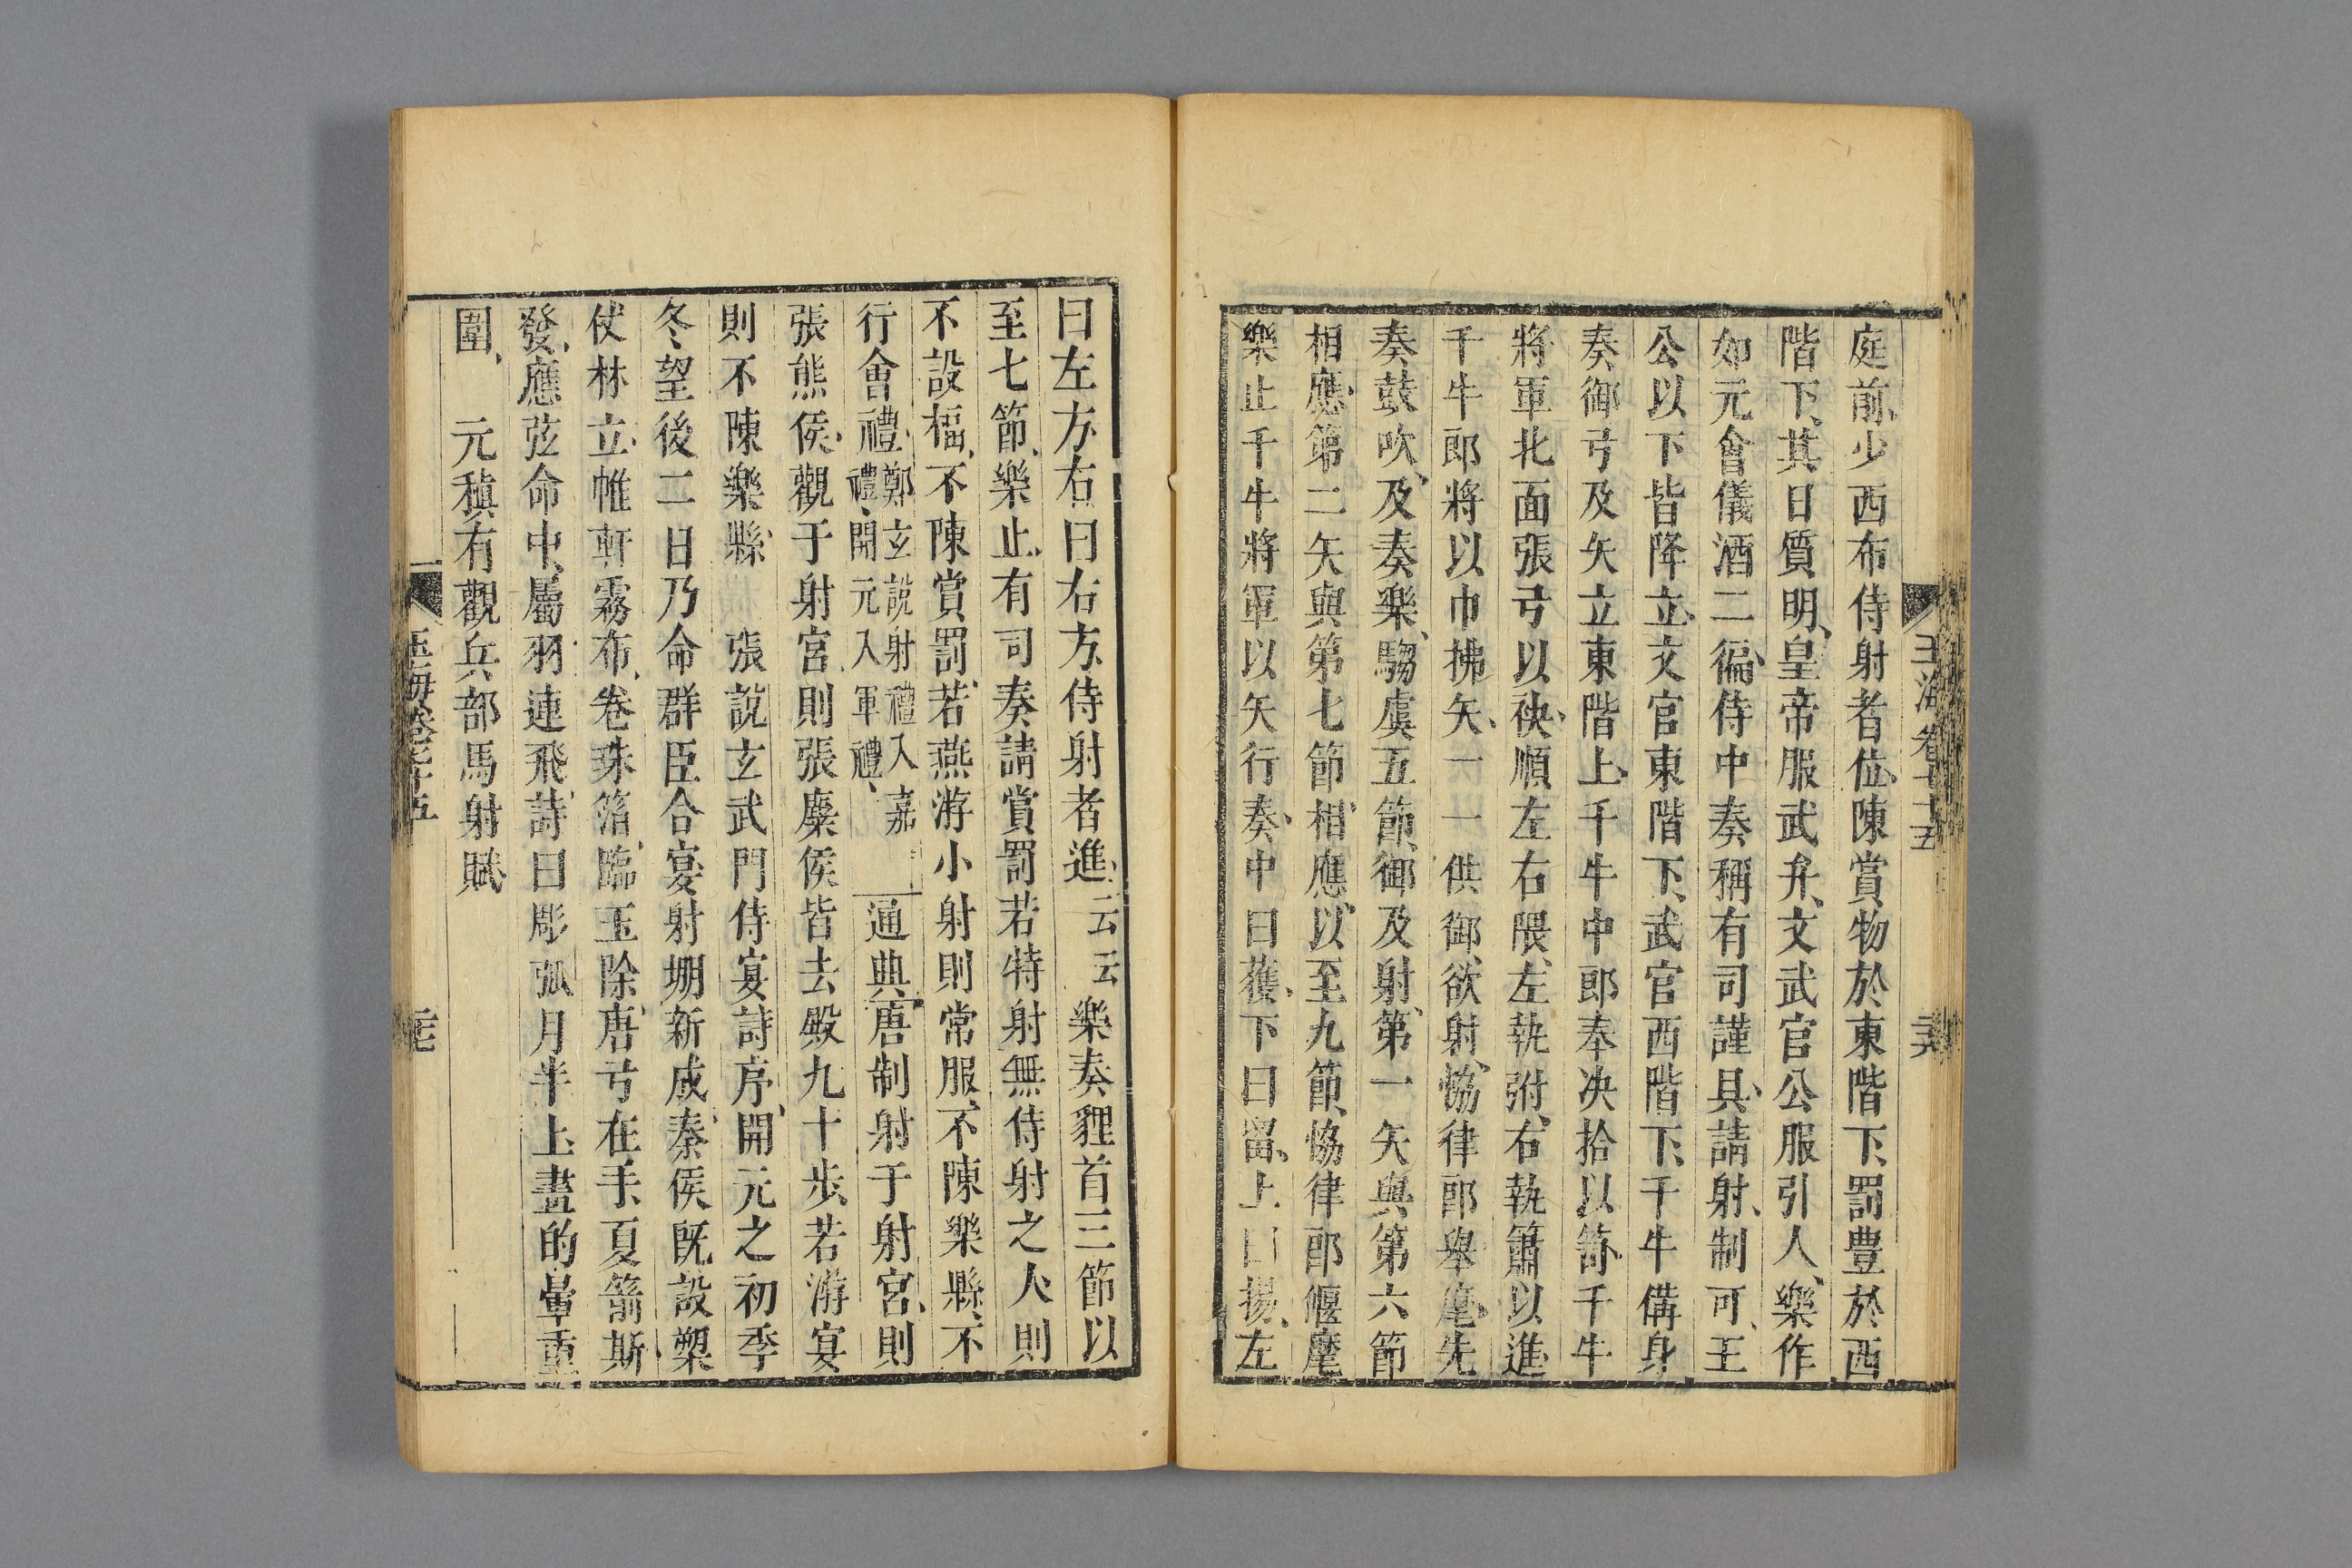 玉海卷七十五
庭前少西布侍射者位、陳賞物於東階下、罰豊於西
階下、其日質明、皇帝服武弁、文武官公服引人、樂作
如元會儀酒二徧、侍中奏稱有司謹具、請射、制可、王
公以下皆降立、文官東階下、武官西階下、千牛備身
奏御弓及矢立東階上、千牛中郎奉决拾以笥、千牛
將軍北面張弓以袂、順左右隈、左執弣、右執簫以進
千牛郎將以巾拂矢、一一供御、欲射、恊律郎舉麾、先
奏鼓吹、及奏樂、騶虞五節、御及射、第一矢與第六節
相應、第二矢與第七節相應、以至九節、恊律郎偃麾
樂止千牛將軍以矢行奏、中曰獲、下曰留、上曰揚、左
曰左方、右曰右方、侍射者進、云云樂奏貍首三節以
至七節、樂止、有司奏請賞罰若特射無侍射之人則
不設楅、不陳賞罰、若燕游小射則常服、不陳樂縣、不
行會禮、鄭玄說射禮入嘉禮、開元入軍禮、通典、唐制射于射宮、則
張熊侯、觀于射宮、則張麋侯皆去殿九十步、若游宴
則不陳樂縣、張說玄武門侍宴詩序、開元之初季
冬望後二日乃命群臣合宴射堋新成、秦侯既設槊
仗林立、帷軒霧布、卷珠箔、臨玉除、唐弓在手、夏箭斯
發、應弦命中、屬羽連飛、詩曰彫弧月半上畫的暈重
圍、元稹有觀兵部馬射賦
玉海卷七十五